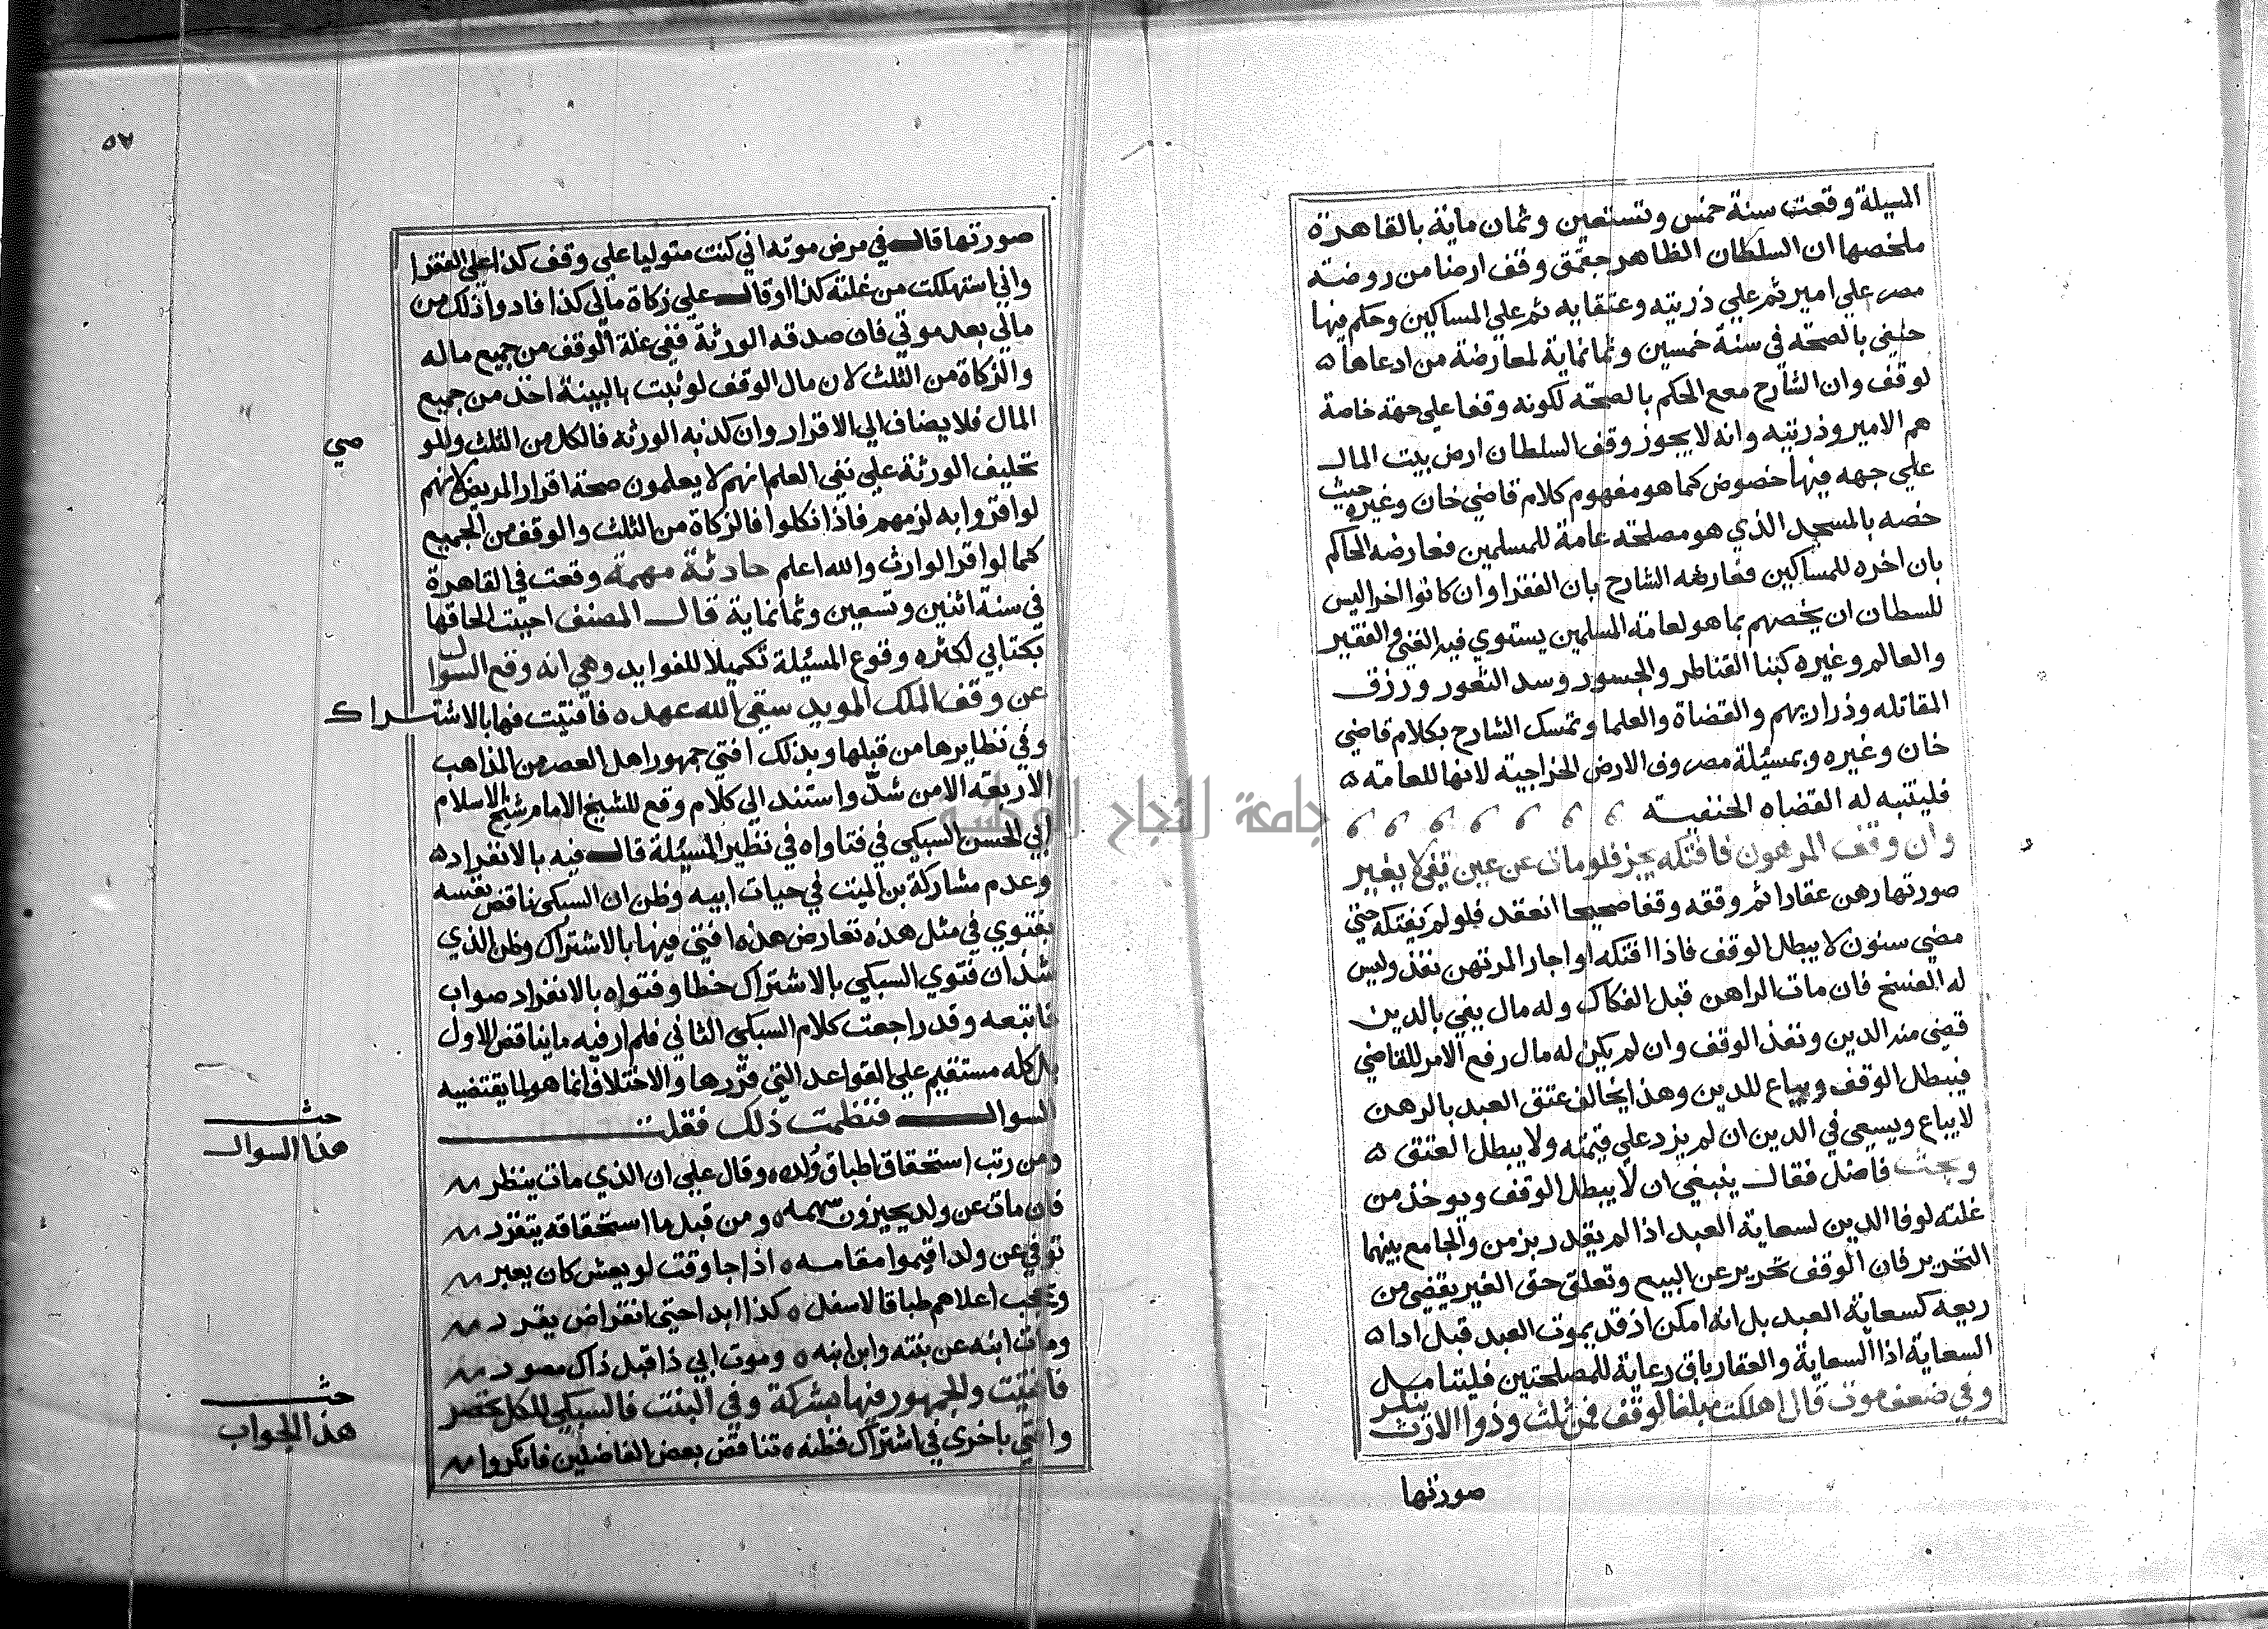 المسيلة وقعت سنة خمس وتستعين وثمان ماية بالقاهرة
ملخصها ان السلطان الظاهر جقمق وقف ارضا من روضة
مصر علي امير ثم علي ذريته وعتقايه ثم علي المساكين وحكم فيها
حنفي بالصحة في سنة خمسين وثمانماية لمعارضة من ادعاها
لوقف وان الشارح معع الحكم بالصحة لكونه وقفا علي جهة خاصة
هم الامير وذريته وانه لا يجوز وقف السلطان ارض بيت المال
علي جهه فيها خصوص كما هو مفهوم كلام قاضي خان وغيره حيث
خصه بالمسجد الذي هو مصلحة عامة للمسلمين فعارضه الحاكم
بان اخره للمساكين فعارضه الشارح بان الفقرا وان كانوا اخرا ليس
للسطان ان يخصهم بما هو لعامة المسلمين يستوي فيه الغني والفقير
والعالم وغيره كبنا القناطر والجسور وسد الثغور ورزق
المقاتله وذراريهم والقضاة والعلما وتمسك الشارح بكلام قاضي
خان وغيره وبمسئيلة مصر وفي الارض الخراجية لانها للعامة
فليتنبه له القضاه الحنفية
وان وقف المرهون فافتكه يجز فلو مات عن عين تفي لا يغير
صورتها رهن عقارا ثم وقفه وقفا صحيحا انعقد فلو لم يفتكه حتي
مضي سنون لا يبطل الوقف فاذا افتكه او اجار المرتهن نفذ وليس
له الفسخ فان مات الراهن قبل الفكاك وله مال يفي بالدين
قضي منه الدين ونفذ الوقف وان لم يكن له مال رفع الامر للقاضي
فيبطل الوقف ويباع للدين وهذا يخالف عتق العبد بالرهن
لا يباع ويسعي في الدين ان لم يزد علي قيمته ولا يبطل العتق
وبحث فاضل فقال ينبغي ان لا يبطل الوقف ويوخذ من
غلته لوفا الدين لسعاية العبد اذا لم يقدر بزمن والجامع بينهما
التحرير فان الوقف تحرير عن البيع وتعلق حق الغير يقضي من
ريعه كسعاية العبد بل انه امكن اذ قد يموت العبد قبل ادا
السعاية اذا السعاية والعقار باق رعاية للمصلحتين فليتنامل
وفي ضعف موت قال اهلكت مبلغا لوقف فمن ثلث وذوا الارث ينكر
صورتها
٥٧
صورتها قال في مرض موته اني كنت متوليا علي وقف كذا علي الفقرا
واني استهلكت من غلته كذا او قال علي زكاة مالي كذا فادوا ذلك من
مالي بعد موتي فان صدقه الورثة ففي غلة الوقف من جميع ماله
والزكاة من الثلث لان مال الوقف لو ثبت بالبينة اخذ من جميع
المال فلا يضاف الي الاقرار وان كذبه الورثة فالكل من الثلث وللو
صي
تحليف الورثة علي نفي العلم انهم لا يعلمون صحة اقرار المريض لانهم
لو اقروا به لزمهم فاذا نكلوا فالزكاة من الثلث والوقف من الجميع
كما لو اقر الوارث والله اعلم حادثة مهمة وقعت في القاهرة
في سنة اثنين وتسعين وثمانماية قال المصنف احببت الحاقها
بكتابي لكثره وقوع المسئيلة تكميلا للفوايد وهي انه وقع السوال
عن وقف الملك المويد سقي الله عهده فافتيت فها بالاشتراك
وفي نظايرها من قبلها وبذلك افتي جمهور اهل العصر من المذاهب
الاربعة الا من شذ واستند الي كلام وقع للشيخ الامام شيخ الاسلام
ابي الحسن السبكي في فتاواه في نظير المسئيلة قال فيه بالانفراد
وعدم مشاركة بن الميت في حيات ابيه وظن ان السبكي ناقض نفسه
بفتوي في مثل هذه تعارض هذه افتي فيها بالاشتراك وظن الذي
شذ ان فتوي السبكي بالاشتراك خطا وفتواه بالانفراد صواب
فاتبعه وقد راجعت كلام السبكي الثاني فلم ار فيه ما يناقض الاول
بل كله مستقيم علي القواعد التي قررها والاختلاف انما هو لما يقتضيه
السوال فنظمت ذلك فقلت
حث
هذا السوال
ومن رتب استحقاق اطباق ولده وقال علي ان الذي مات ينظر
فان مات عن ولد يحيزون سهمه ومن قبل ما استحقاقه يتقرد
توفي عن ولد اقيموا مقامه اذا جا وقت لو يعش كان يعبر
وتحجب اعلاهم طباقا لاسفل كذا ابدا حتي انقراض يقرد
ومات ابنه عن بنته وابن ابنه وموت ابي ذا قبل ذاك مصود
حث
هذا الجواب
فافتيت والجمهور فيها بشركة وفي البنت فالسبكي للكل تحصر
وافتي باخري في اشتراك فظنه تناقض بعض الفاضلين فانكروا
جامعة النجاح الوطنية